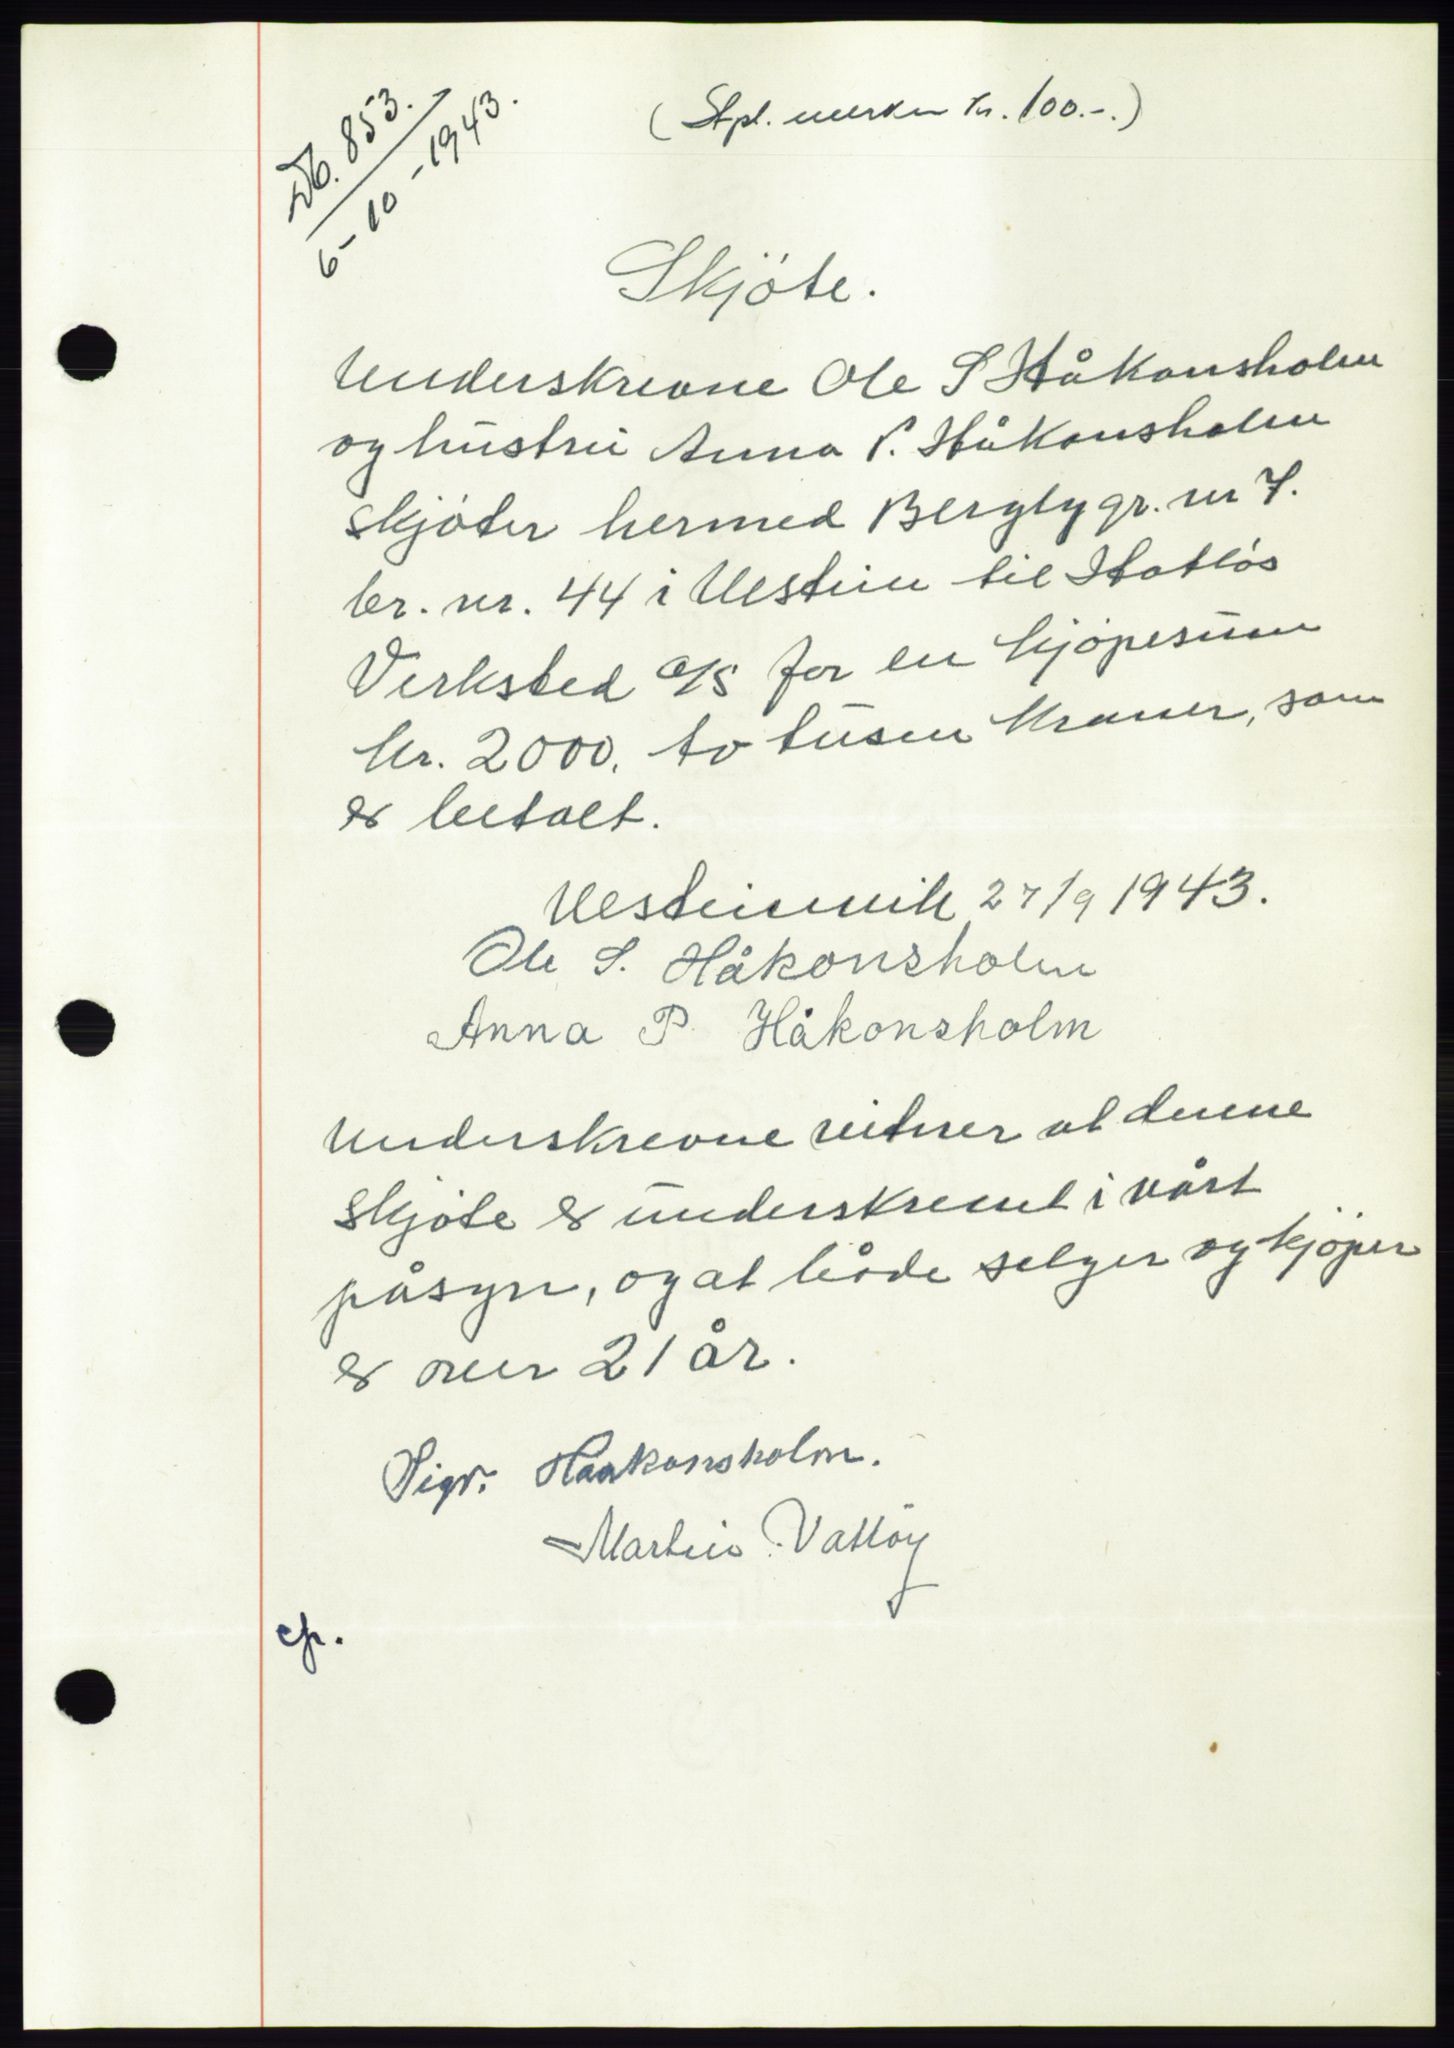 Db. 853.
6-10-1943.
(Stpl. merker kr. 100.-.)
Skjöte.
Underskrevne Ole S Håkonsholm
og hustru Anna P. Håkonsholm
skjöter hermed Bergly gr. nr 7.
br. nr. 44 i Vestein til Hatlös
Verksted a/s for en kjöpesum
kr. 2000, to tusen kroner, som
er betalt.
Vesteinvik 27/9 1943.
Ole S. Håkonsholm
Anna P Håkonsholm
Underskrevne vitner at denne
skjöte er underskrevet i vårt
påsyn, og at både selger og kjöper
er over 21 år.
Sigv. Haakonsholm.
Martin Vattöy